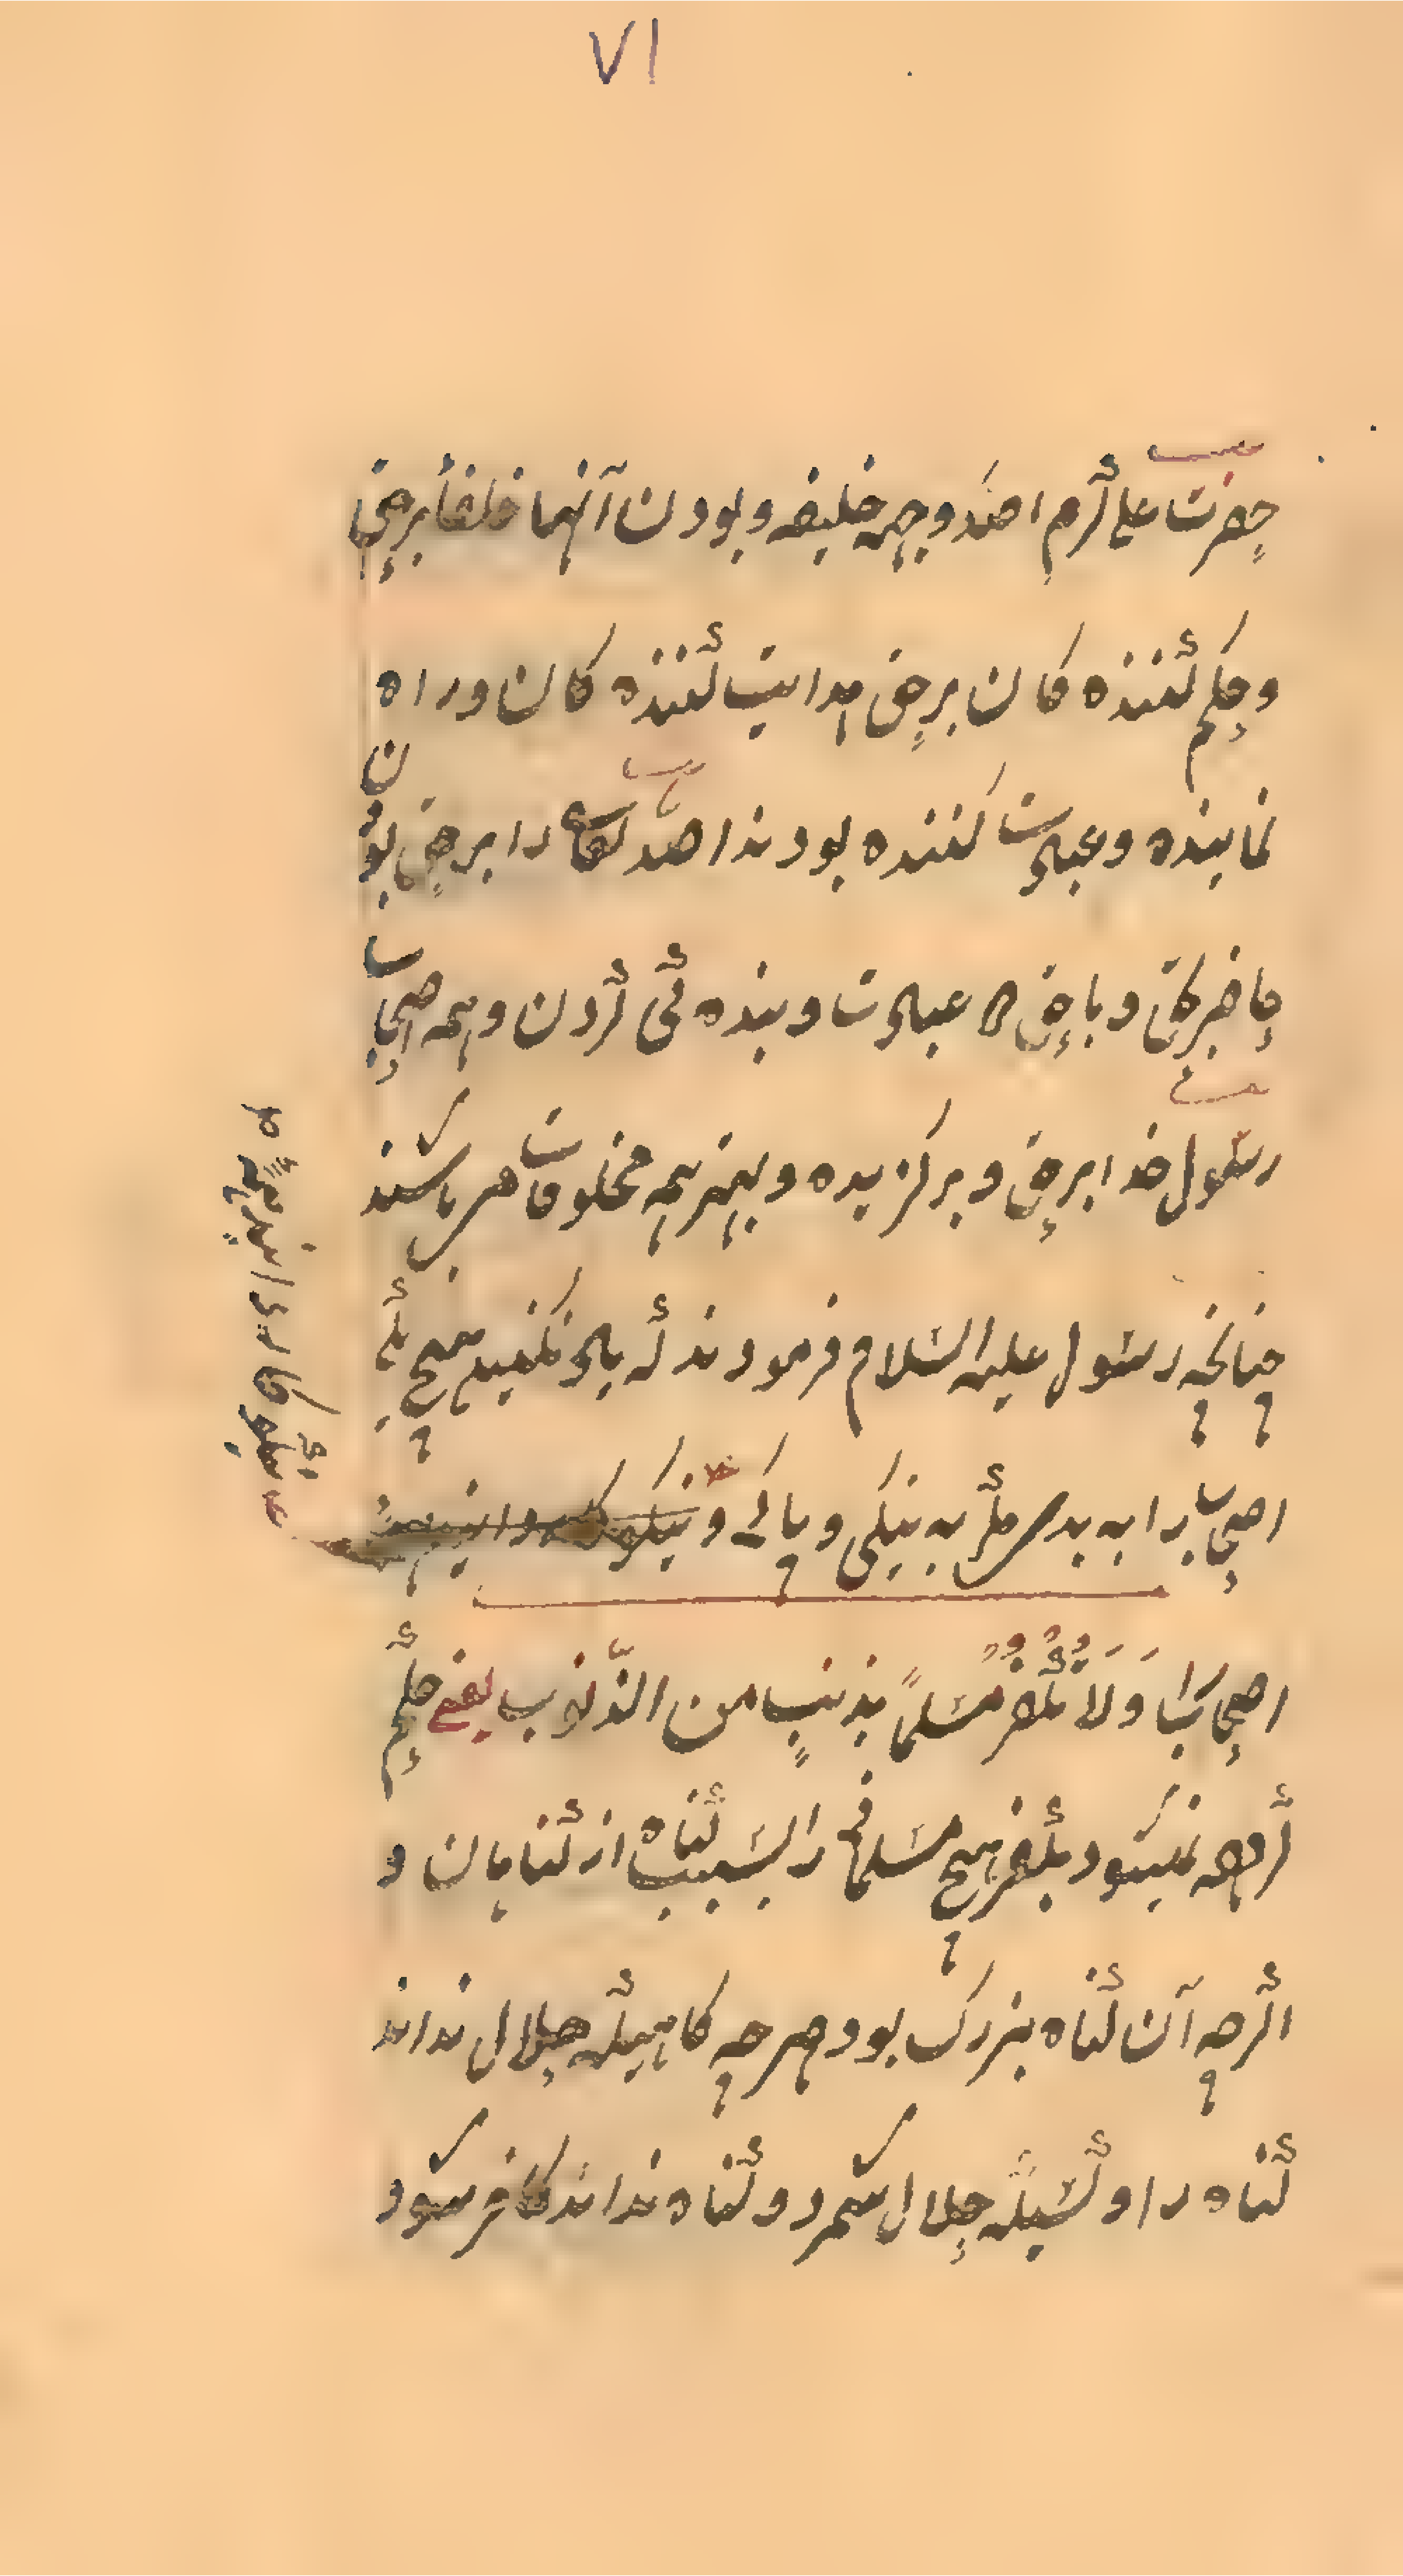 ۷۱
حضرت علی کرم الله وجهه خلیفه و بودن آنها خلفأ برحق
و حکم کننده کان برحق هدایت کننده کان و راه
نماینده و عبادت کننده بودند الله تعالی را برحق بودن
حاضر حق و باحق در عبادت و بنده کی کردن و همه اصحاب
رسول خدا برحق و برگزیده و بهتر همه مخلوقات می باشند
چنانچه رسول علیه السلام فرمودند که یاد نکنید هیچ یکی
اصحاب را به بد مگر به نیکی و پاکی و نیکو
اصحاب را وَلَا نُكَفِّرُ مُسْلِمًا بِذَنْبٍ من الذّنوب یعنی حکم
کرده نمیشود بکفر هیچ مسلمانی را بسبب گناه از گناهان و
اگرچه آن گناه بزرگ بود هر چه کاهیکه حلال نداند
گناه را و کسیکه حلال شمرد و گناه نداند کافر شود